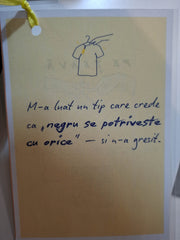 M-a luat un tip care crede
ca „negru se potriveste
cu orice” — si n-a gresit.